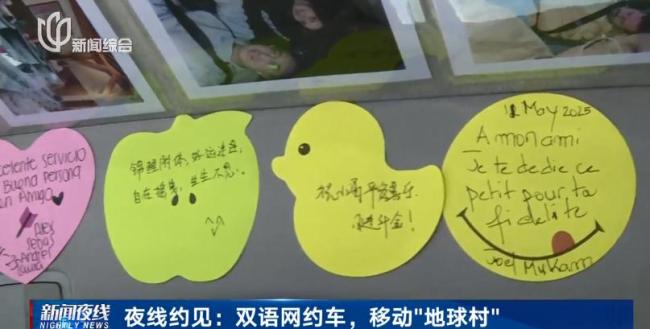 新闻综合
celente servicio
Buena Persona
Amigo
锦鲤附体，好运连连，
自在摇曳，生生不息。
祝小哥平安喜乐
日进斗金！
11 May 2025
A mon ami
Je te dedie ce
petit pour ta
fidelite
Joel Mukam
新闻夜线
NIGHTLY NEWS
夜线约见：双语网约车，移动"地球村"